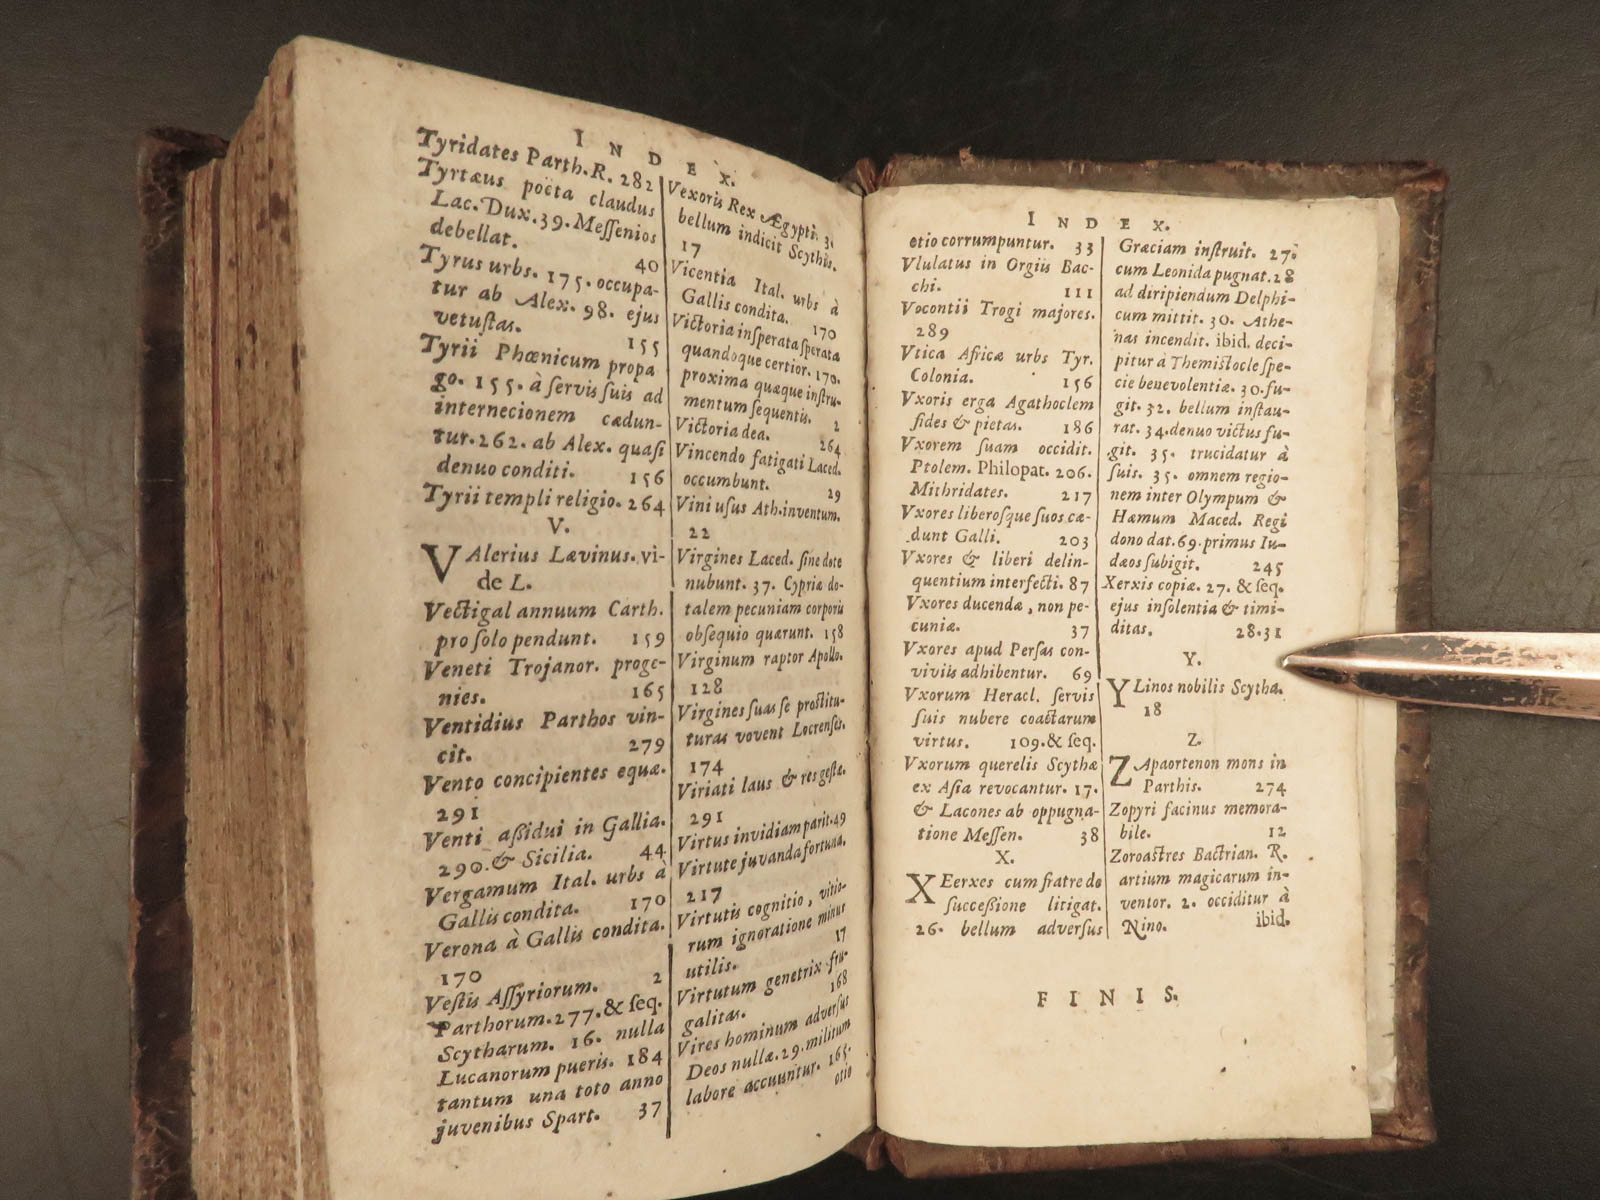 INDEX.
Tyridates Parth. R. 282
Tyrtæus poëta claudus
Lac. Dux. 39. Meſſenios
debellat. 40
Tyrus urbs. 175. occupa-
tur ab Alex. 98. ejus
vetuſtas. 155
Tyrii Phœnicum propa
go. 155. à ſervis ſuis ad
internecionem cædun-
tur. 262. ab Alex. quaſi
denuo conditi. 156
Tyrii templi religio. 264
V.
VAlerius Lævinus. vi-
de L.
Vectigal annuum Carth.
pro ſolo pendunt. 159
Veneti Trojanor. proge-
nies. 165
Ventidius Parthos vin-
cit. 279
Vento concipientes equæ.
291
Venti aſſidui in Gallia.
290. & Sicilia. 44
Vergamum Ital. urbs à
Gallis condita. 170
Verona à Gallis condita.
170
Veſtis Aſſyriorum. 2
Parthorum. 277. & ſeq.
Scytharum. 16. nulla
Lucanorum pueris. 184
tantum una toto anno
juvenibus Spart. 37
Vexoris Rex Ægypti. 3.
bellum indicit Scythis.
17
Vicentia Ital. urbs à
Gallis condita. 170
Victoria inſperata ſperata
quandoque certior. 170.
proxima quæque inſtru-
mentum ſequentis. 2
Victoria dea. 264
Vincendo fatigati Laced.
occumbunt. 29
Vini uſus Ath. inventum.
22
Virgines Laced. ſine dote
nubunt. 37. Cypriæ do-
talem pecuniam corporis
obſequio quærunt. 158
Virginum raptor Apollo.
128
Virgines ſuas ſe proſtitu-
turas vovent Locrenſes.
174
Viriati laus & res geſtæ.
291
Virtus invidiam parit. 49
Virtute juvanda fortuna.
217
Virtutis cognitio, vitio-
rum ignoratione minus
utilis. 17
Virtutum genetrix fru-
galitas. 168
Vires hominum adverſus
Deos nullæ. 29. militum
labore accuuntur. 165.
otio
INDEX.
otio corrumpuntur. 33
Vlulatus in Orgiis Bac-
chi. 111
Vocontii Trogi majores.
289
Vtica Africæ urbs Tyr.
Colonia. 156
Vxoris erga Agathoclem
fides & pietas. 186
Vxorem ſuam occidit.
Ptolem. Philopat. 206.
Mithridates. 217
Vxores liberoſque ſuos cæ-
dunt Galli. 203
Vxores & liberi delin-
quentium interfecti. 87
Vxores ducendæ, non pe-
cuniæ. 37
Vxores apud Perſas con-
viviis adhibentur. 69
Vxorum Heracl. ſervis
ſuis nubere coactarum
virtus. 109. & ſeq.
Vxorum querelis Scythæ
ex Aſia revocantur. 17.
& Lacones ab oppugna-
tione Meſſen. 38
X.
XEerxes cum fratre de
ſucceſſione litigat.
26. bellum adverſus
Græciam inſtruit. 27.
cum Leonida pugnat. 28
ad diripiendum Delphi-
cum mittit. 30. Athe-
nas incendit. ibid. deci-
pitur à Themiſtocle ſpe-
cie benevolentiæ. 30. fu-
git. 32. bellum inſtau-
rat. 34. denuo victus fu-
git. 35. trucidatur à
ſuis. 35. omnem regio-
nem inter Olympum &
Hæmum Maced. Regi
dono dat. 69. primus Iu-
dæos ſubigit. 245
Xerxis copiæ. 27. & ſeq.
ejus inſolentia & timi-
ditas. 28. 31
Y.
YLinos nobilis Scytha.
18
Z.
ZApaortenon mons in
Parthis. 274
Zopyri facinus memora-
bile. 12
Zoroaſtres Bactrian. R.
artium magicarum in-
ventor. 2. occiditur à
Nino. ibid.
FINIS.